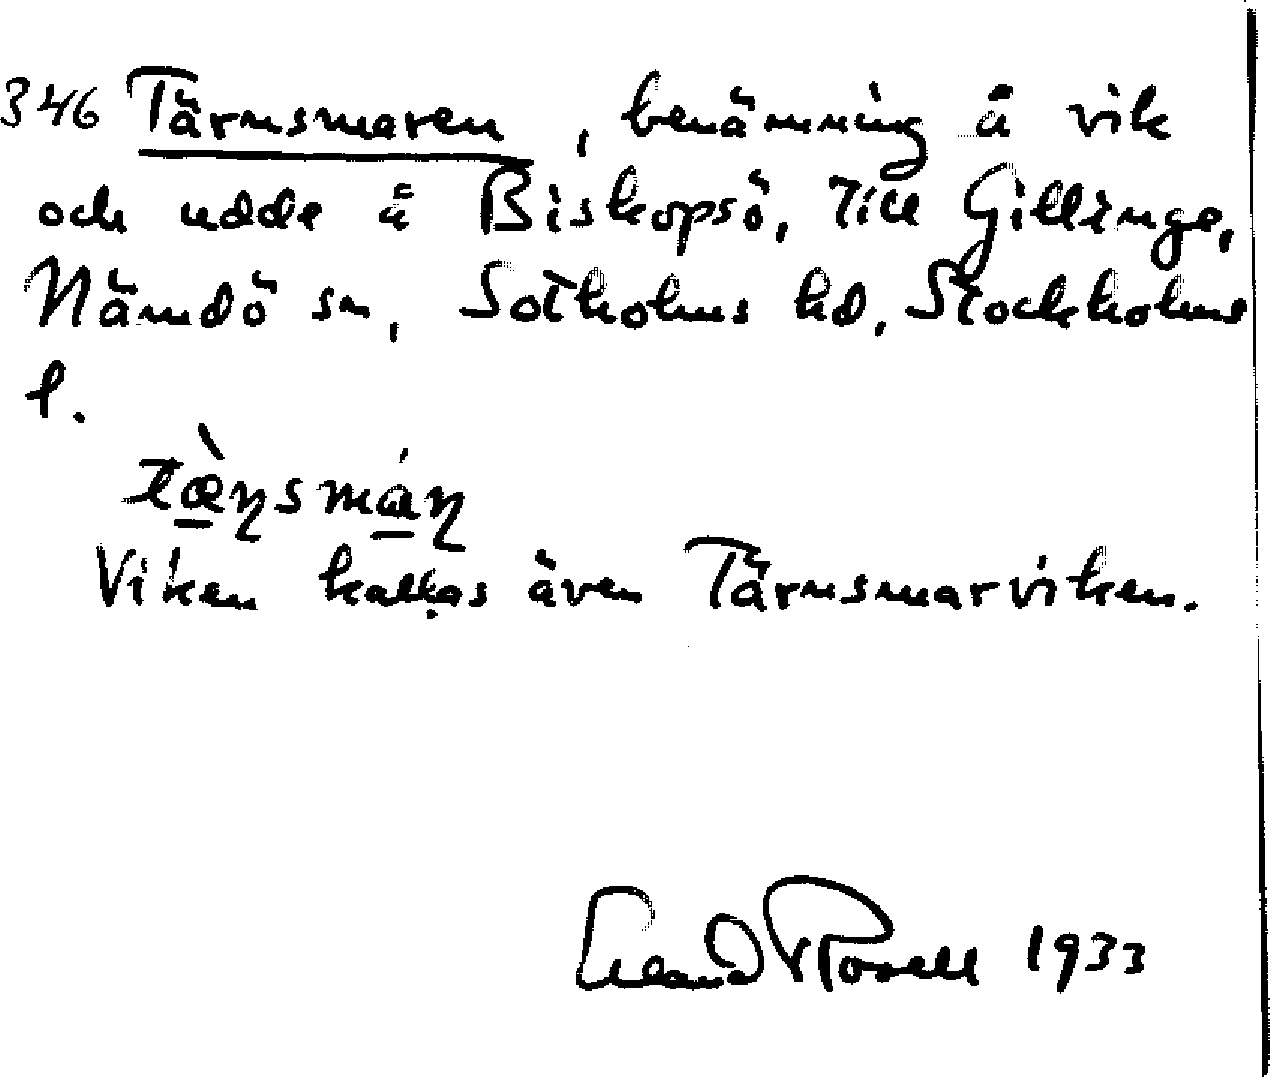 346 Tärnsmaren, benämning å vik
och udde å Biskopsö, till Gillinge,
Nämdö sn, Sotholms hd, Stockholms
l.
tæ̀ṇsmáṇ
Viken kallas även Tärnsmarviken.
Erland Rosell 1933